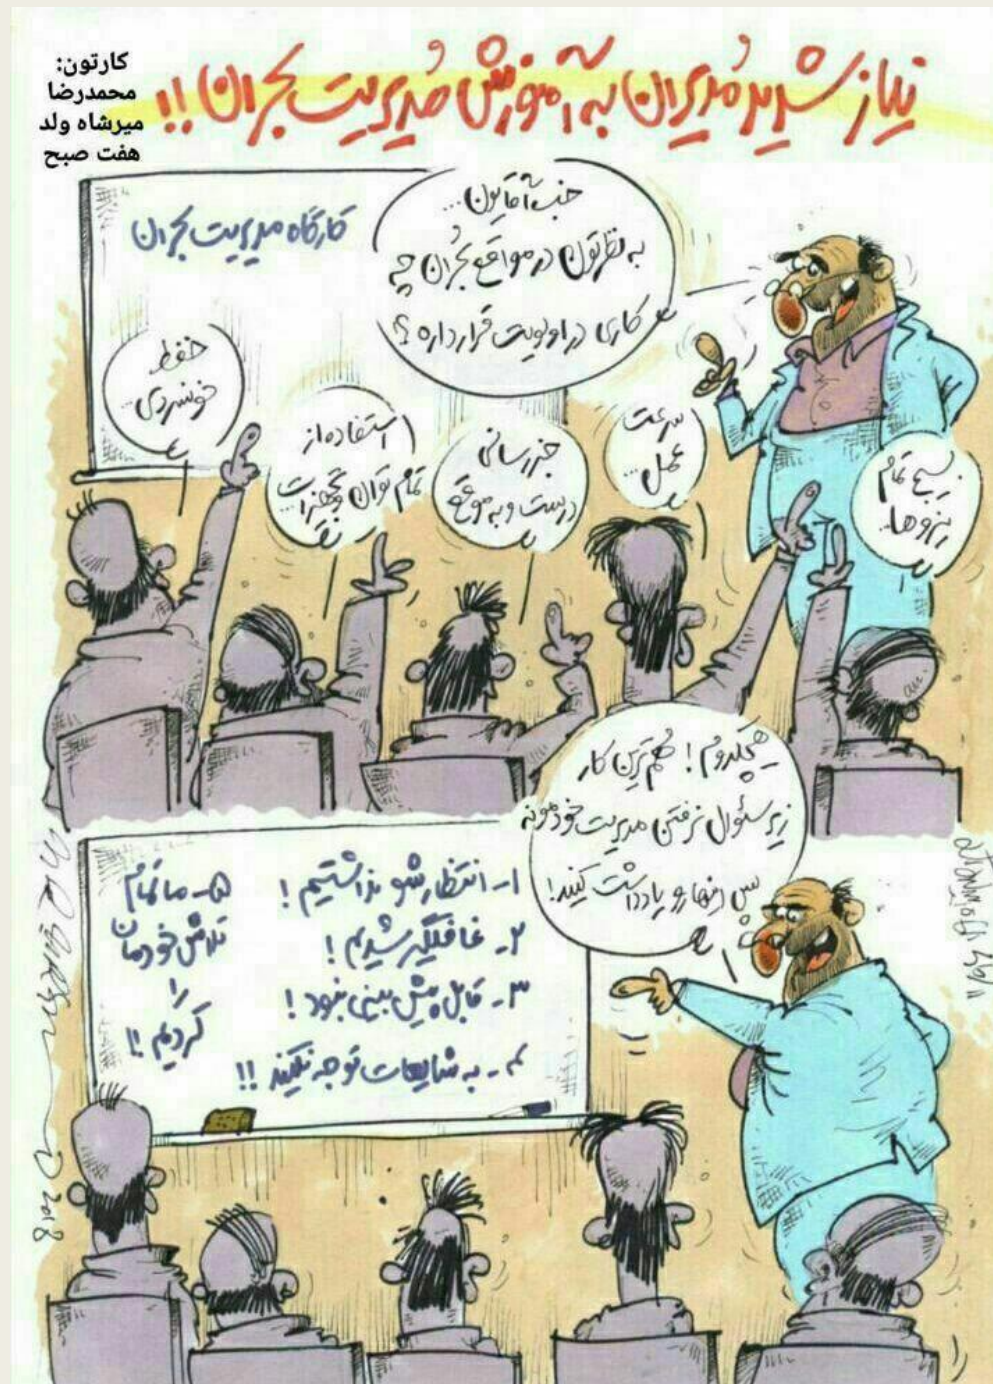 نیاز شدید مدیران به آموزش مدیریت بحران!!
کارتون:
محمدرضا
میرشاه ولد
هفت صبح
کارگاه مدیریت بحران
خب آقایون...
به نظرتون در مواقع بحران چه
کاری در اولویت قرار داره؟
حفظ
خونسردی...
استفاده از
تمام توان و تجهیزات...
خبررسانی
درست و به موقع
سرعت
عمل...
بسیج تمام
نیروها...
هیچکدوم! مهم ترین کار
زیر سئوال نرفتن مدیریت خودمونه
پس اینها رو یادداشت کنید!
۱- انتظارشو نداشتیم!
۲- غافلگیر شدیم!
۳- قابل پیش بینی نبود!
۴- به شایعات توجه نکنید!!
۵- ما تمام
تلاش خودمان
را
کردیم!!
2018